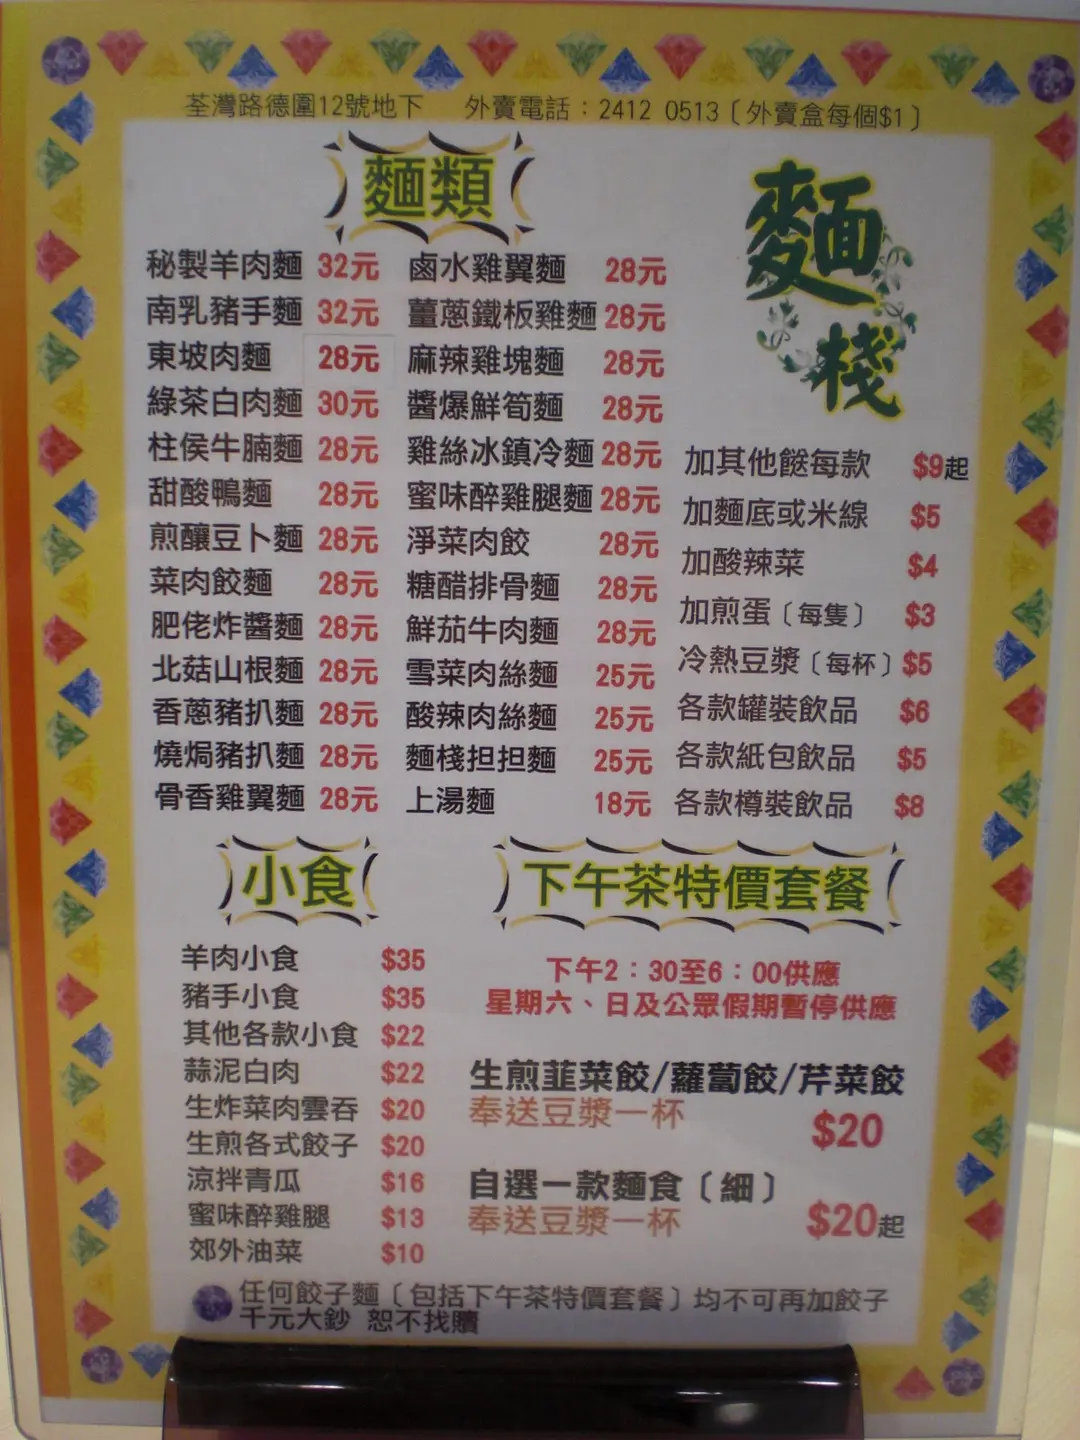 荃灣路德圍12號地下 外賣電話：2412 0513〔外賣盒每個$1〕
麵類
麵棧
秘製羊肉麵 32元
南乳豬手麵 32元
東坡肉麵 28元
綠茶白肉麵 30元
柱侯牛腩麵 28元
甜酸鴨麵 28元
煎釀豆卜麵 28元
菜肉餃麵 28元
肥佬炸醬麵 28元
北菇山根麵 28元
香蔥豬扒麵 28元
燒焗豬扒麵 28元
骨香雞翼麵 28元
鹵水雞翼麵 28元
薑蔥鐵板雞麵 28元
麻辣雞塊麵 28元
醬爆鮮筍麵 28元
雞絲冰鎮冷麵 28元
蜜味醉雞腿麵 28元
淨菜肉餃 28元
糖醋排骨麵 28元
鮮茄牛肉麵 28元
雪菜肉絲麵 25元
酸辣肉絲麵 25元
麵棧担担麵 25元
上湯麵 18元
加其他餸每款 $9起
加麵底或米線 $5
加酸辣菜 $4
加煎蛋〔每隻〕 $3
冷熱豆漿〔每杯〕 $5
各款罐裝飲品 $6
各款紙包飲品 $5
各款樽裝飲品 $8
小食
羊肉小食 $35
豬手小食 $35
其他各款小食 $22
蒜泥白肉 $22
生炸菜肉雲吞 $20
生煎各式餃子 $20
涼拌青瓜 $16
蜜味醉雞腿 $13
郊外油菜 $10
下午茶特價套餐
下午2：30至6：00供應
星期六、日及公眾假期暫停供應
生煎韮菜餃/蘿蔔餃/芹菜餃
奉送豆漿一杯 $20
自選一款麵食〔細〕
奉送豆漿一杯 $20起
任何餃子麵〔包括下午茶特價套餐〕均不可再加餃子
千元大鈔 恕不找贖